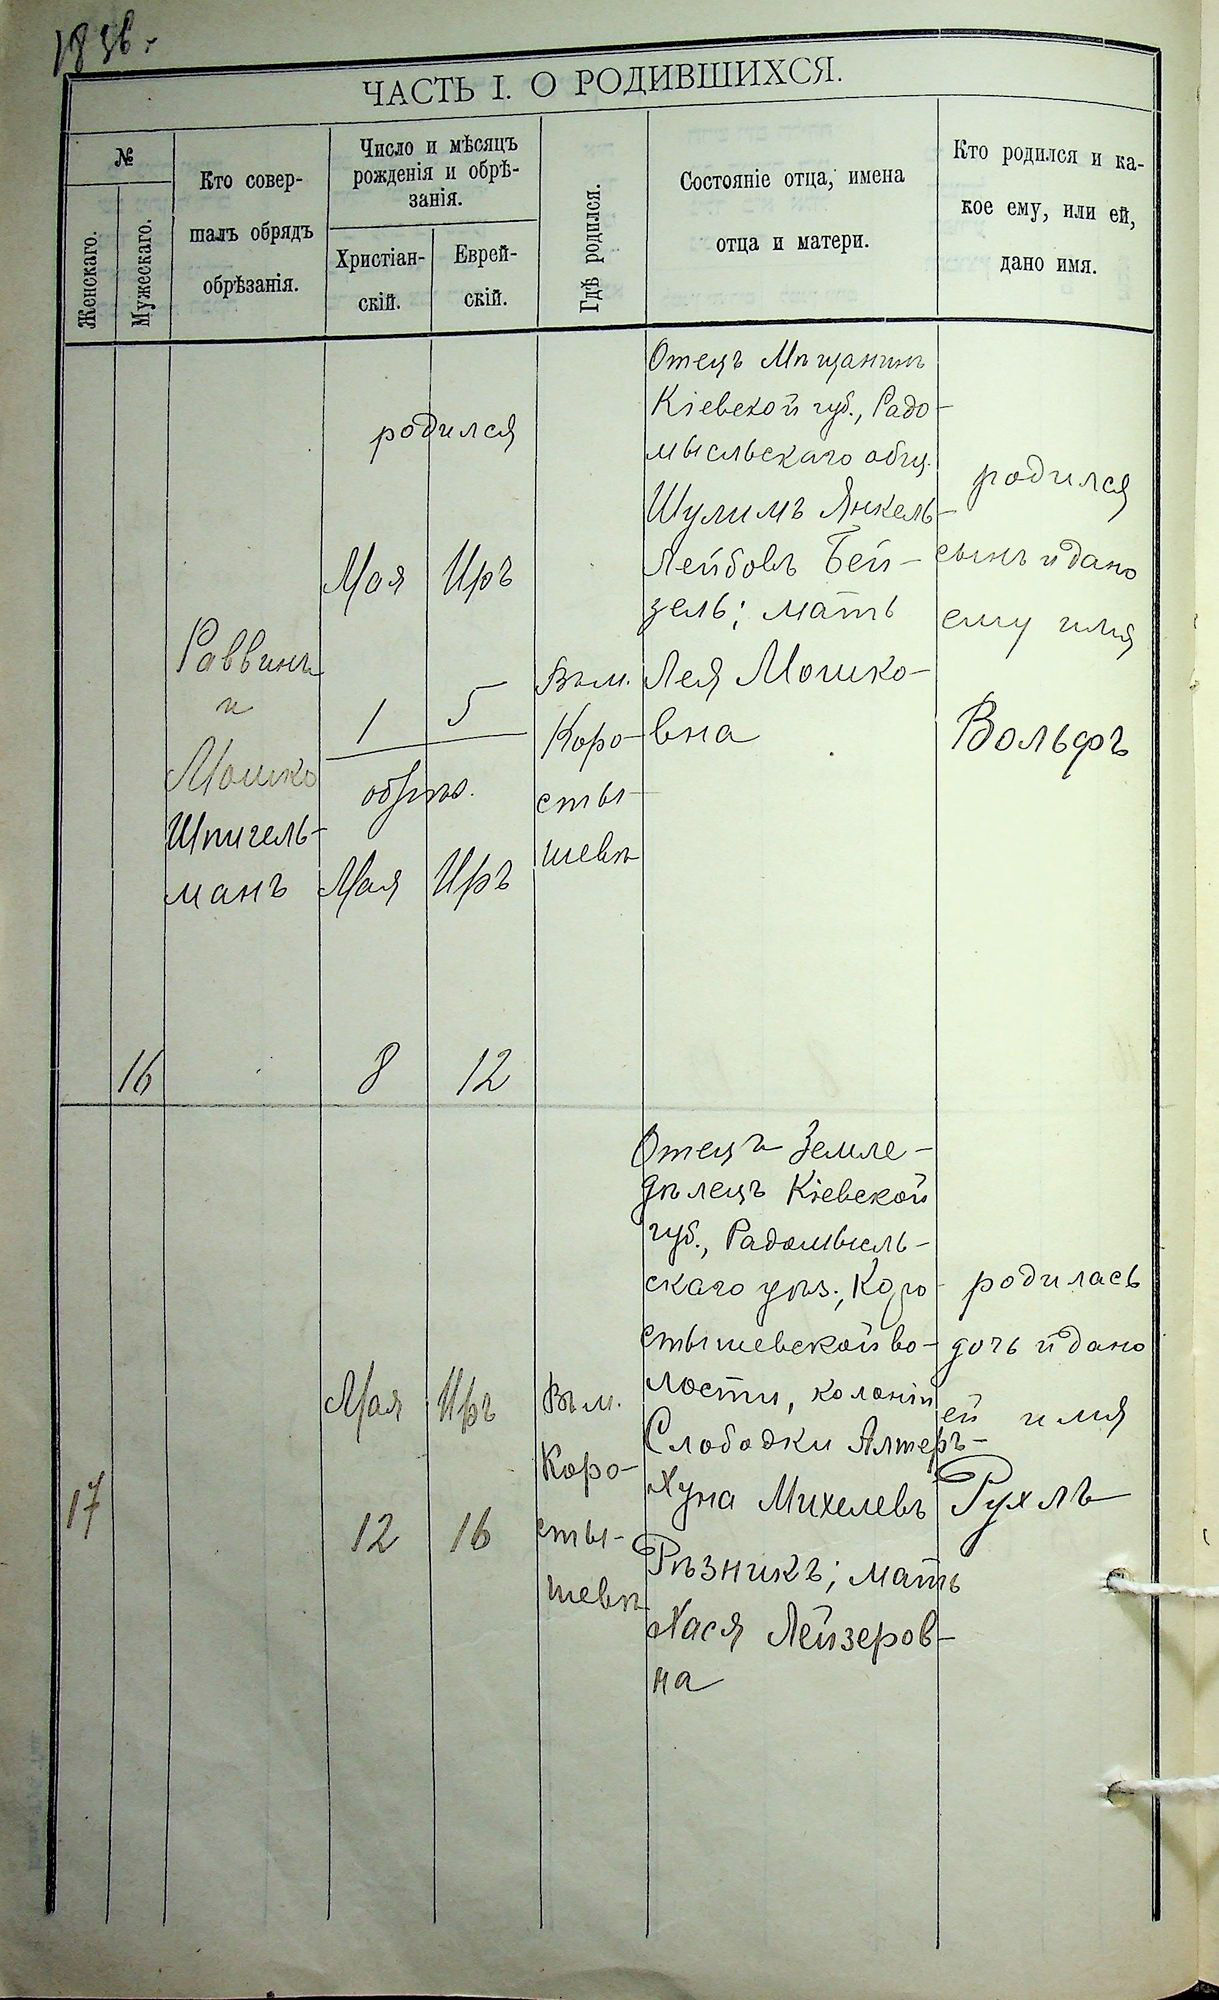 ЧАСТЬ I. О РОДИВШИХСЯ.
№
Женскаго.
Мужескаго.
Кто совер-
шалъ обрядъ
обрѣзанія.
Число и мѣсяцъ
рожденія и обрѣ-
занія.
Христіан-
скій.
Еврей-
скій.
Гдѣ родился.
Состояніе отца, имена
отца и матери.
Кто родился и ка-
кое ему, или ей,
дано имя.
16
Раввинъ
и
Мошко
Шпигель-
манъ
родился
Мая Иръ
1 5
обрѣз.
Мая Иръ
8 12
Въ м.
Коро-
сты-
шевѣ
Отецъ Мѣщанинъ
Кіевской губ., Радо-
мысльскаго общ.
Шулимъ Янкель-
Лейбовъ Бей-
зель; мать
Лея Мошко-
вна
родился
сынъ и дано
ему имя
Вольфъ
17
Мая Иръ
12 16
Въ м.
Коро-
сты-
шевѣ
Отецъ Земле-
дѣлецъ Кіевской
губ., Радомысль-
скаго уѣз., Коро-
стышевской во-
лости, колоніи
Слободки Алтеръ-
Хуна Михелевъ
Рѣзникъ; мать
Хася Лейзеров-
на
родилась
дочь и дано
ей имя
Рухлъ